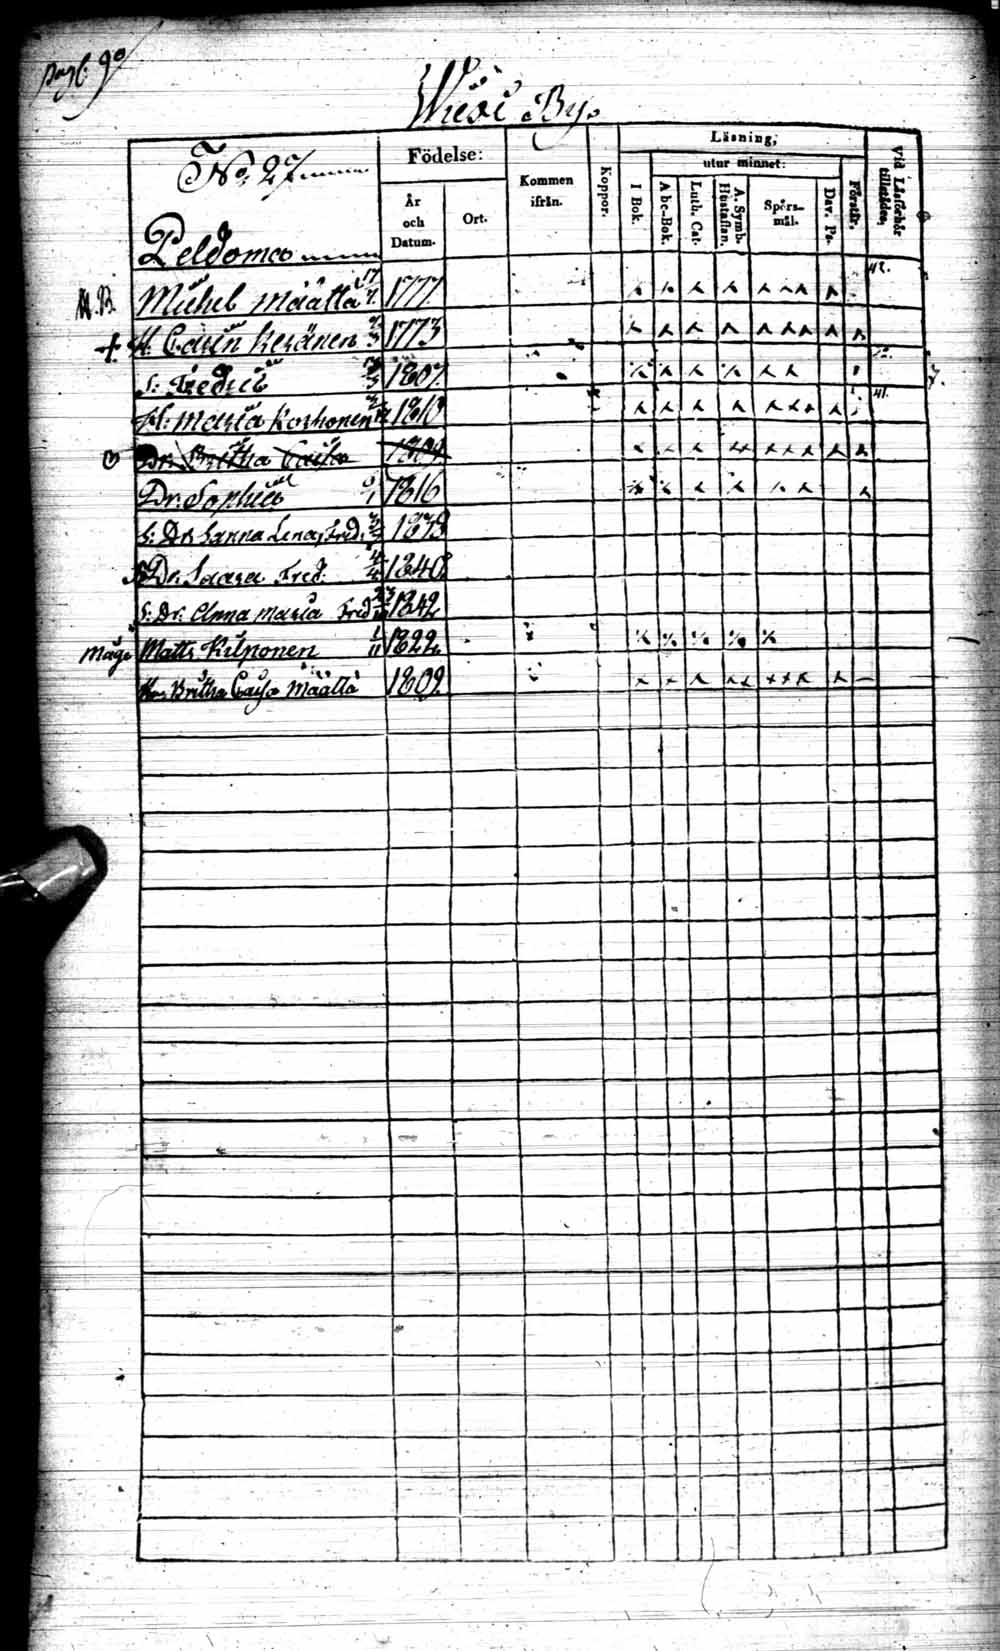 pag. 90
By.
No. 27
Födelse:
År
och
Datum.
Ort.
Kommen
ifrån.
Koppor.
Läsning,
utur minnet:
I Bok.
Abc-Bok.
Luth. Cat.
A. Symb.
Hustaflan.
Spörs-
mål.
Dav. Ps.
Förstår.
Vid Läsförhör
tillstädes,
Peldomaa
N.B. Michel Määttä 17 1777 42.
+ H. Carin Keränen 1773
S: Fredric 1807
H: Maria Korhonen 1810 41.
Dr. Britha Caisa 1809
Dr. Sophia 1816
S: Dr. Sanna Lena, Fred. 1838
S: Dr. Fred. 1840
S: Dr. Anna Maria Fred. 1842
Måge Matts Kilponen 1/11 1822
Britha Caisa Määttä 1809